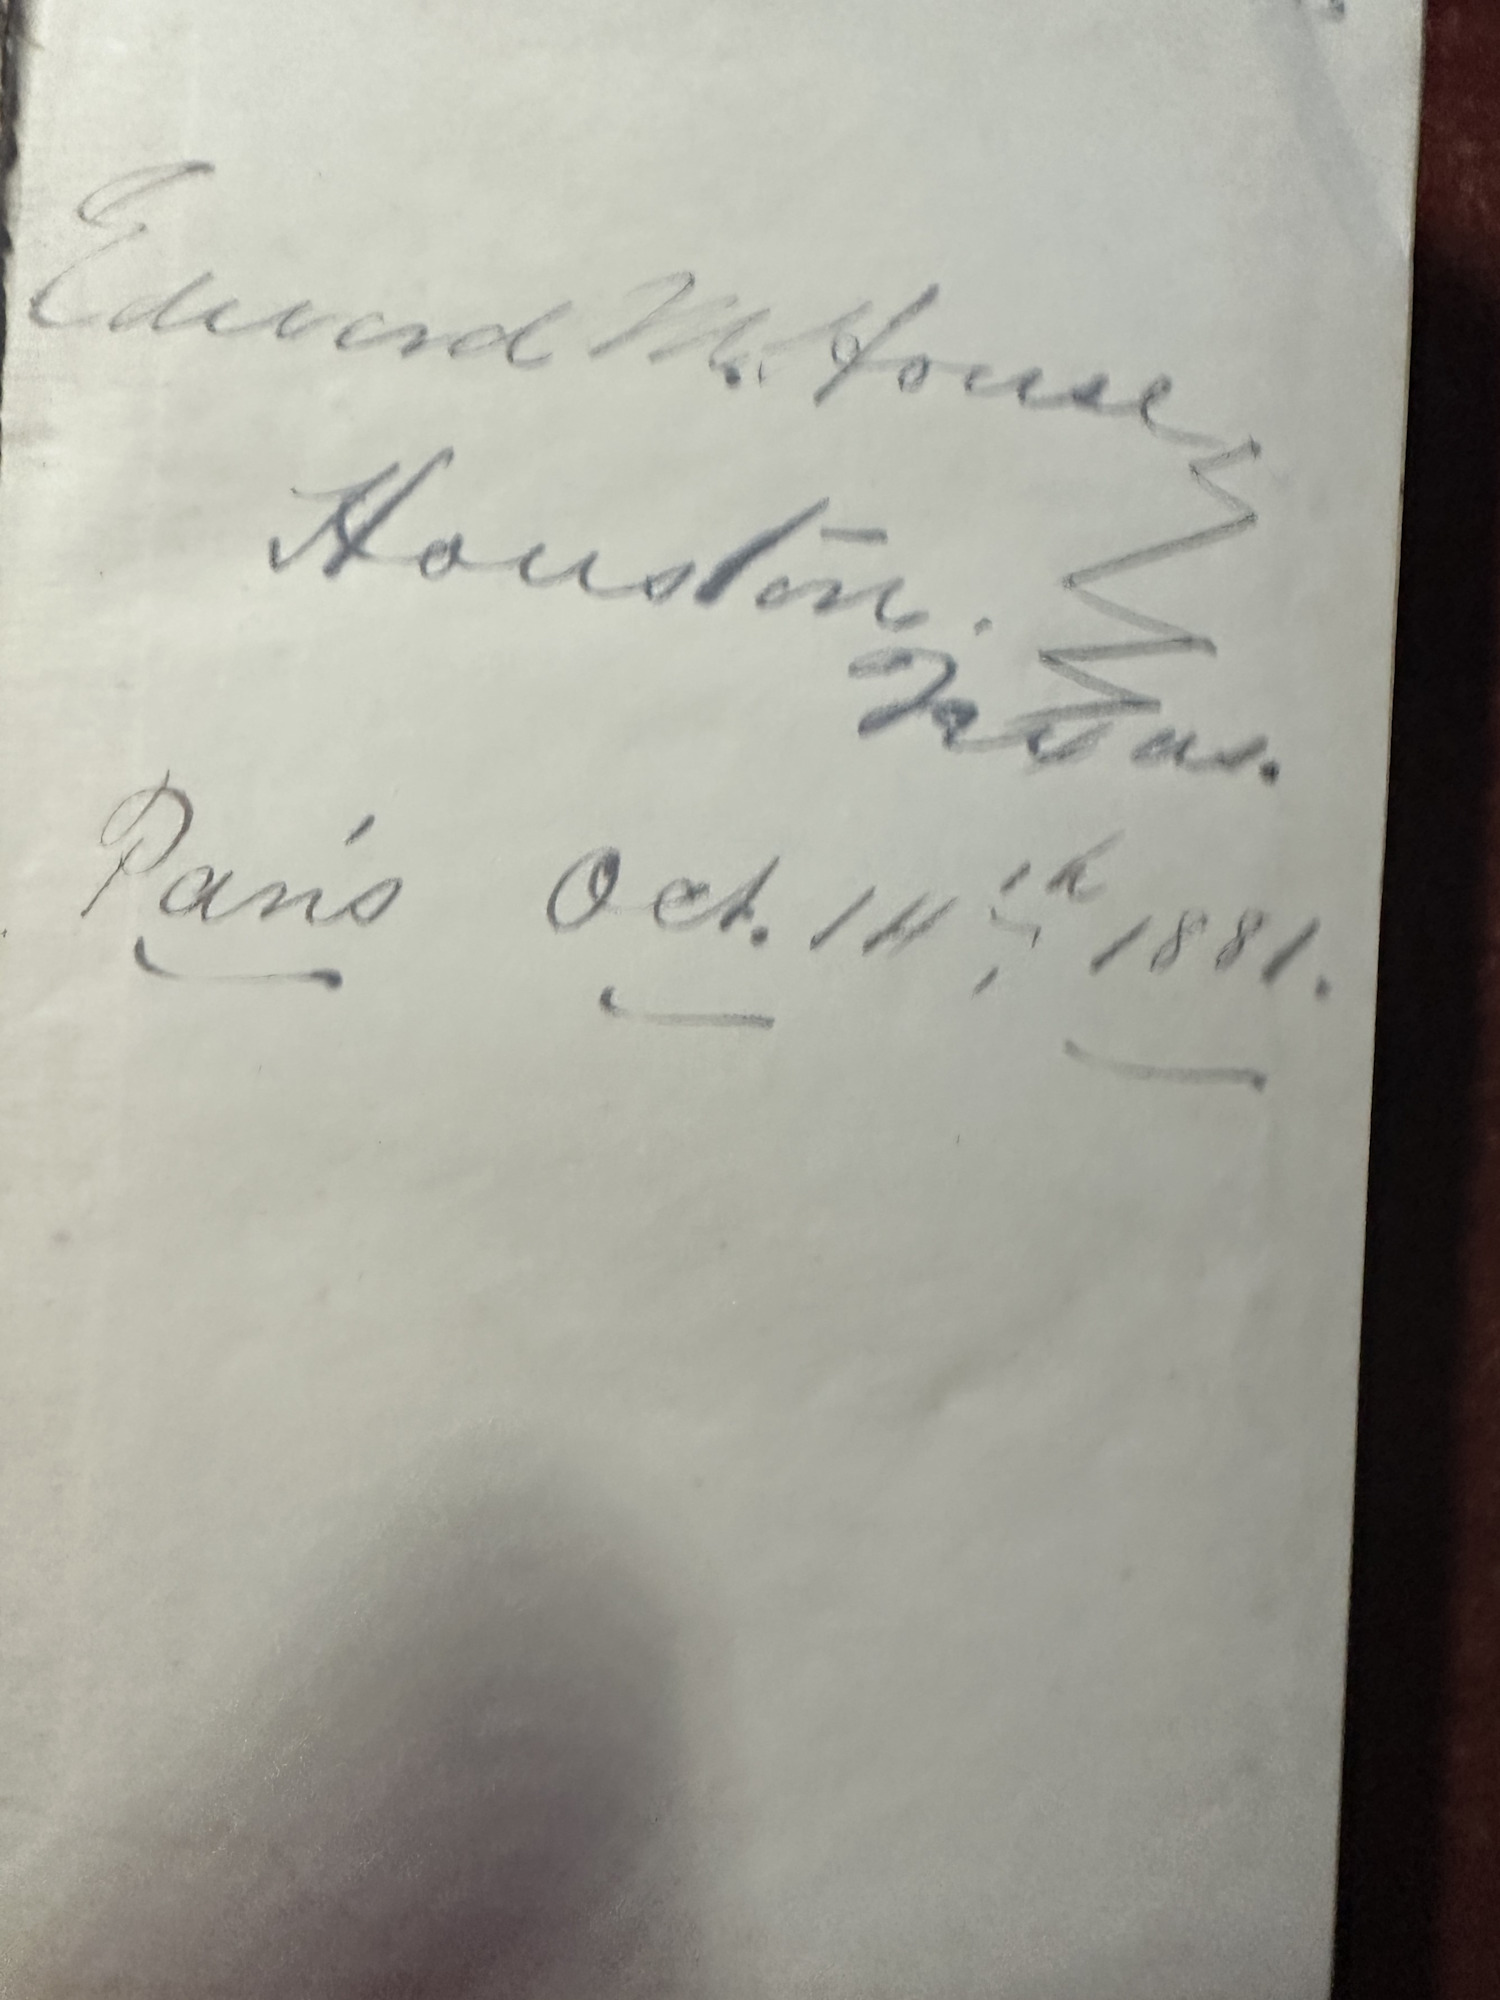 Edward M. House
Houston.
Texas.
Paris Oct. 14th 1881.